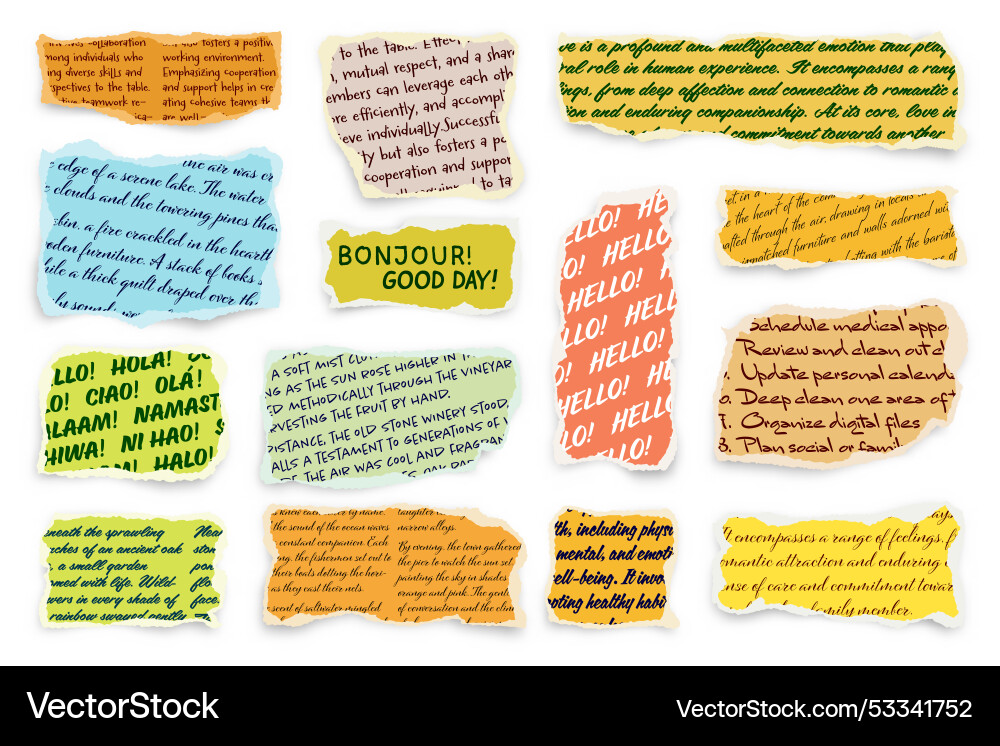 individuals who
ing diverse skills and
to the table.
teamwork re-
also fosters a positive
working environment.
Emphasizing cooperation
and support helps in cre
ating cohesive teams
are well
to the table.
n, mutual respect, and a shar
embers can leverage each oth
re efficiently, and accompl
ieve individually.Successfu
ty but also fosters a po
cooperation and suppor
to ta
ve is a profound and multifaceted emotion that play
ral role in human experience. It encompasses a rang
ings, from deep affection and connection to romantic a
ion and enduring companionship. At its core, love in
commitment towards another
the air was cr
e edge of a serene lake. The water
e clouds and the towering pines tha
skin, a fire crackled in the hearth
oden furniture. A stack of books s
hile a thick quilt draped over th
ly sound
BONJOUR!
GOOD DAY!
ELLO! HE
LO! HELLO
HELLO!
LLO! HELL
HELLO!
LLO! HE
HELLO!
LO! HELL
LLO!
et in a
e the heart of the
afted through the air, drawing in locals
ismatched furniture and walls adorned wit
with the barista
LLO! HOLA!
LO! CIAO! OLÁ!
ALAAM! NAMAST
HIWA! NI HAO! S
HALO!
A SOFT MIST
NG AS THE SUN ROSE HIGHER IN
ED METHODICALLY THROUGH THE VINEYAR
RVESTING THE FRUIT BY HAND.
DISTANCE, THE OLD STONE WINERY STOOD,
ALLS A TESTAMENT TO GENERATIONS OF
THE AIR WAS COOL AND FRAGRAN
OAK BAR
Schedule medical appo
Review and clean out cl
Update personal calenda
Deep clean one area of
7. Organize digital files
8. Plan social or famil
neath the sprawling
ches of an ancient oak
, a small garden
med with life. Wild-
wers in every shade of
rainbow swayed gently
Near
ston
pon
flo
face.
knew each other by name.
the sound of the ocean waves
constant companion. Each
ng, the fishermen set out to
their boats dotting the hori-
as they cast their nets.
scent of saltwater mingled
laughter
narrow alleys.
By evening, the town gathered
the pier to watch the sun set
painting the sky in shades
orange and pink. The gentl
of conversation and the clin
th, including physi
mental, and emoti
ell-being. It invo
oting healthy habi
It encompasses a range of feelings, f
omantic attraction and enduring c
nse of care and commitment towar
family member.
VectorStock
VectorStock.com/53341752